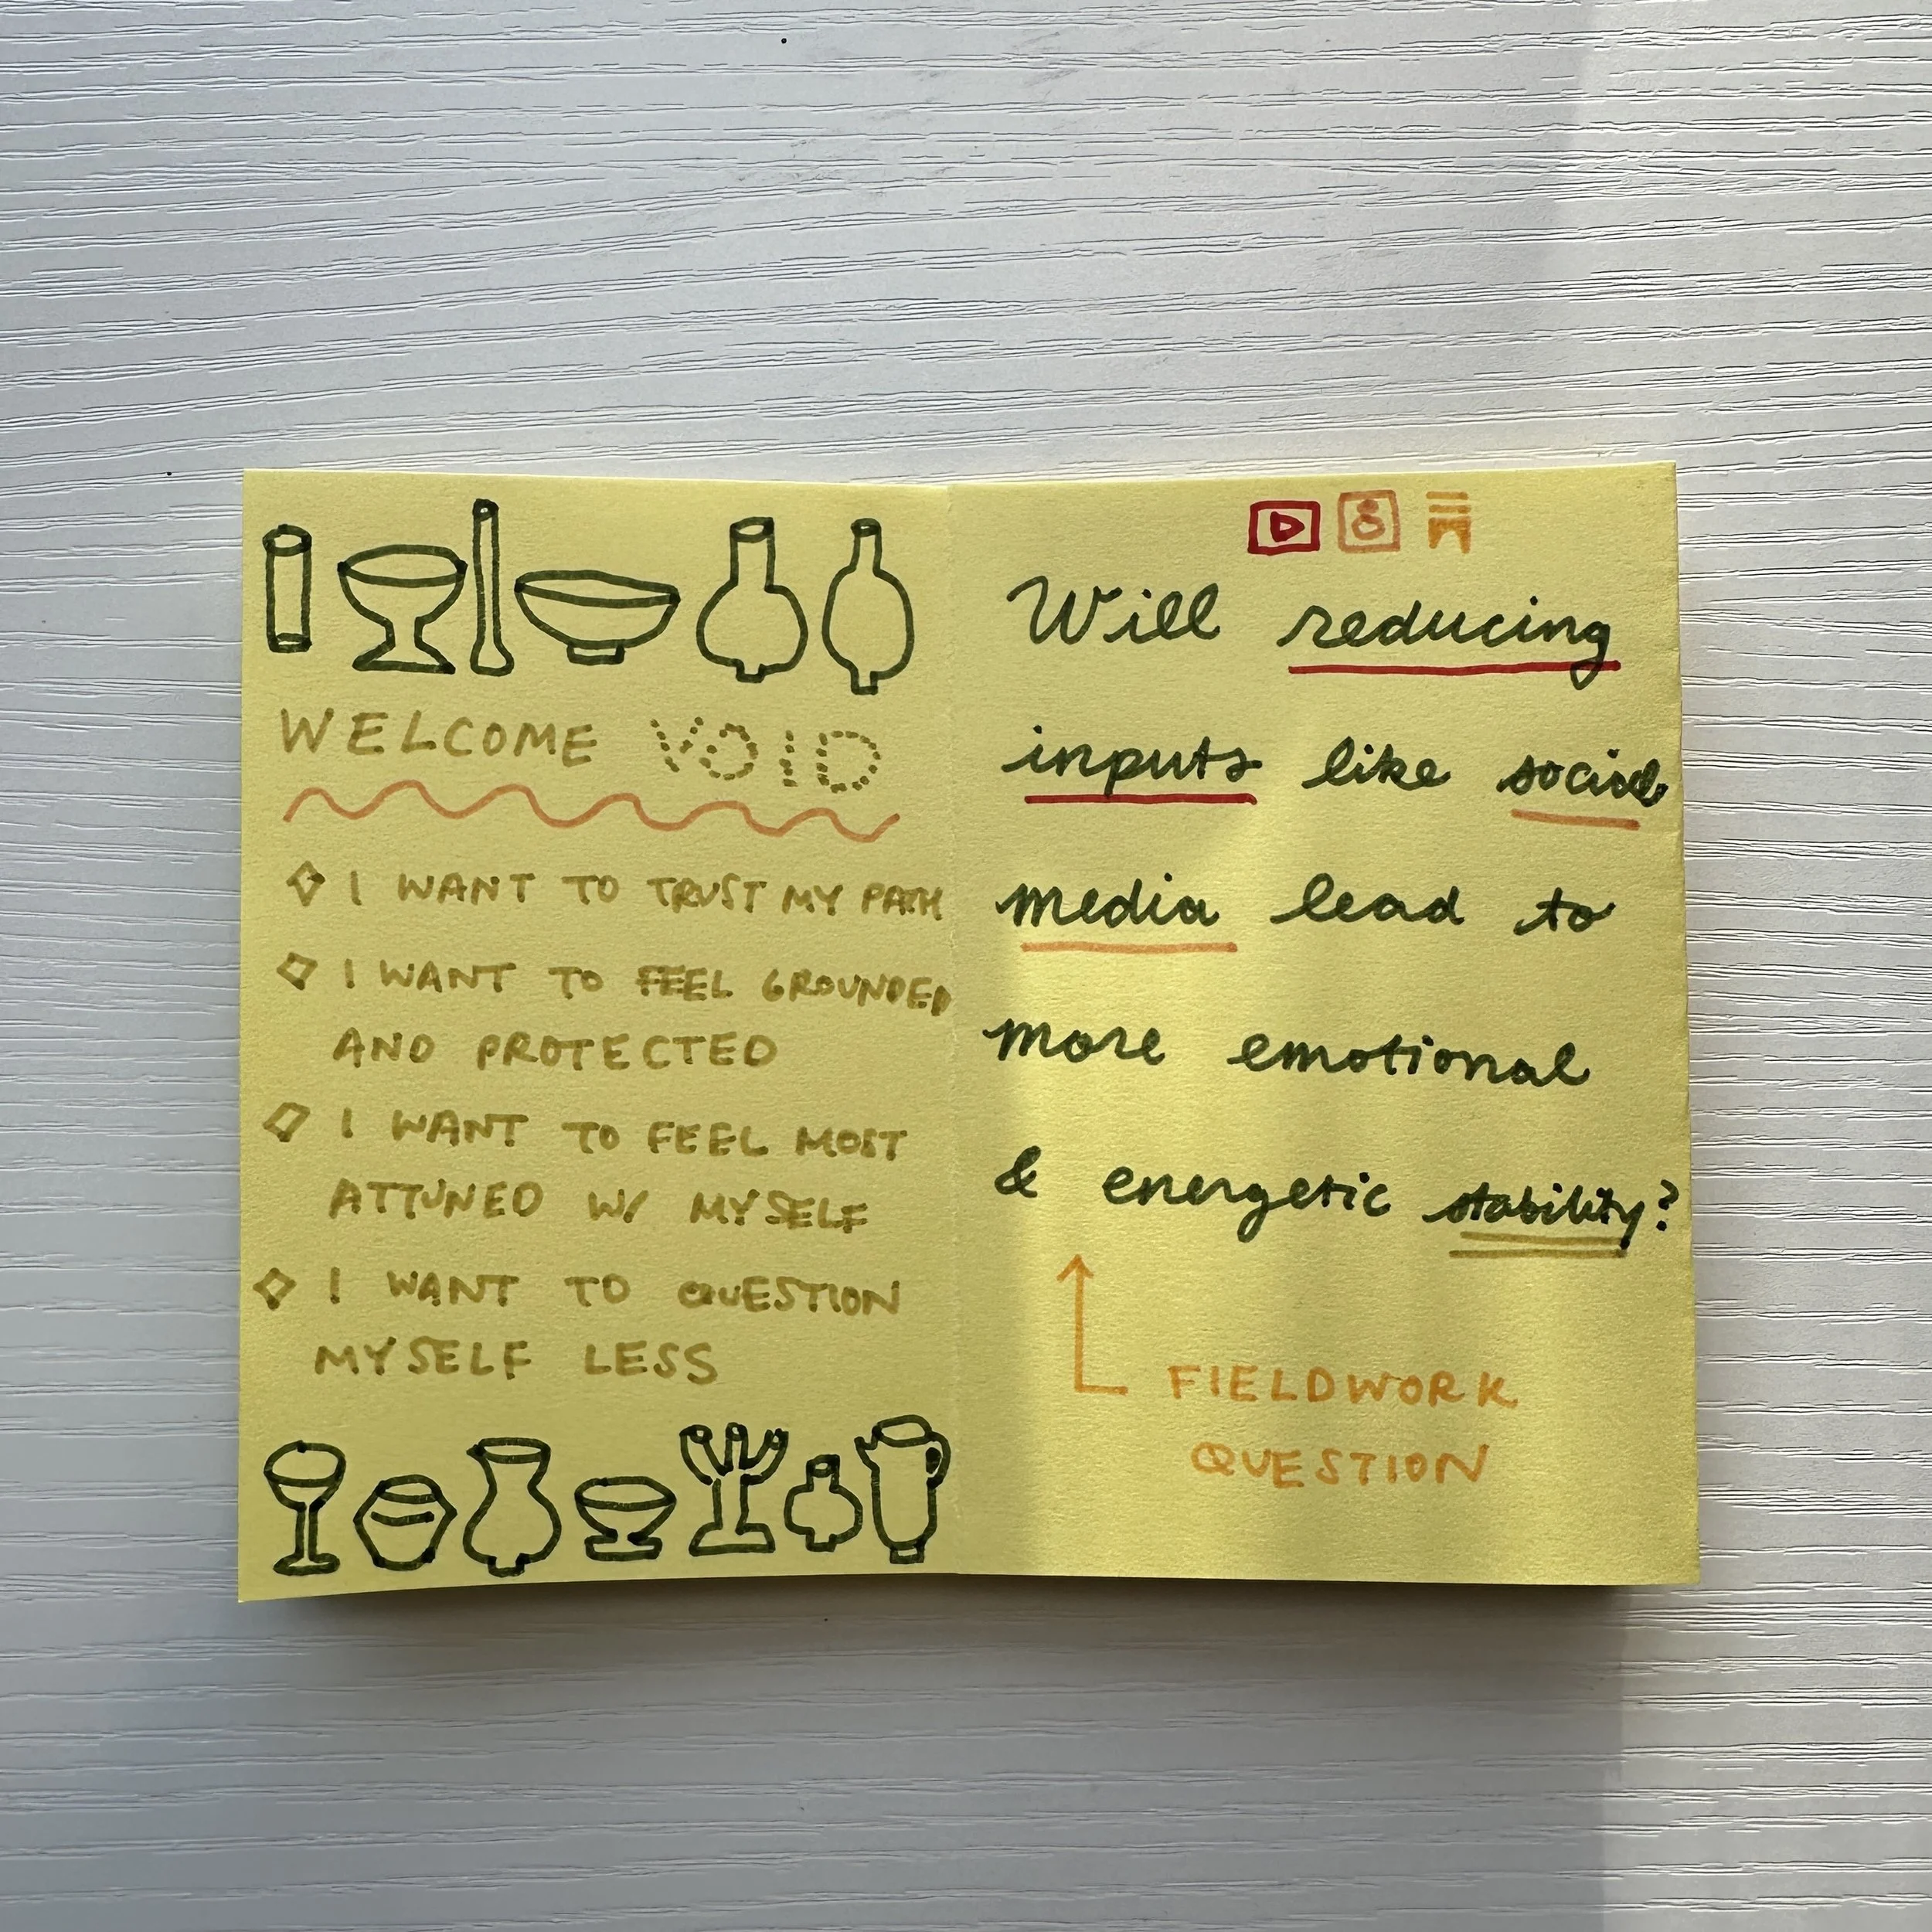 WELCOME VOID
I WANT TO TRUST MY PATH
I WANT TO FEEL GROUNDED
AND PROTECTED
I WANT TO FEEL MOST
ATTUNED W/ MYSELF
I WANT TO QUESTION
MYSELF LESS
Will reducing
inputs like social
media lead to
more emotional
& energetic stability?
FIELDWORK
QUESTION